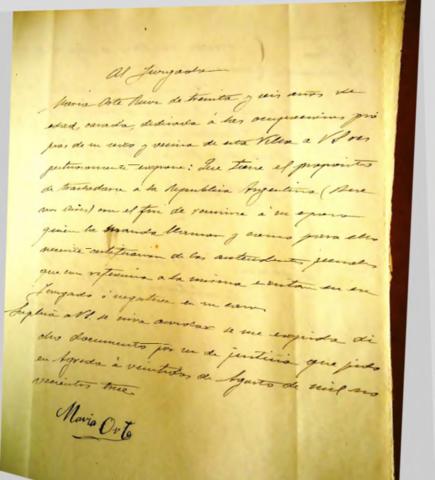 Al Juzgado
Maria Orte Ruiz de treinta y seis años de
edad, casada, dedicada á las ocupaciones pro
pias de su sexo y vecina de esta Villa a VS res
petuosamente expone: Que tiene el propósito
de trasladarse á la República Argentina (Bue
nos Aires) con el fin de reunirse á su esposo
quien la manda llamar y como para ello
necesite certificacion de los antecedentes penales
que con referencia a la misma existan en ese
Juzgado ó negativa en su caso
Suplica a VS se sirva acordar se me expida di
cho documento por ser de justicia que pido
en Agreda á veintidos de Agosto de mil no
vecientos trece.
Maria Orte